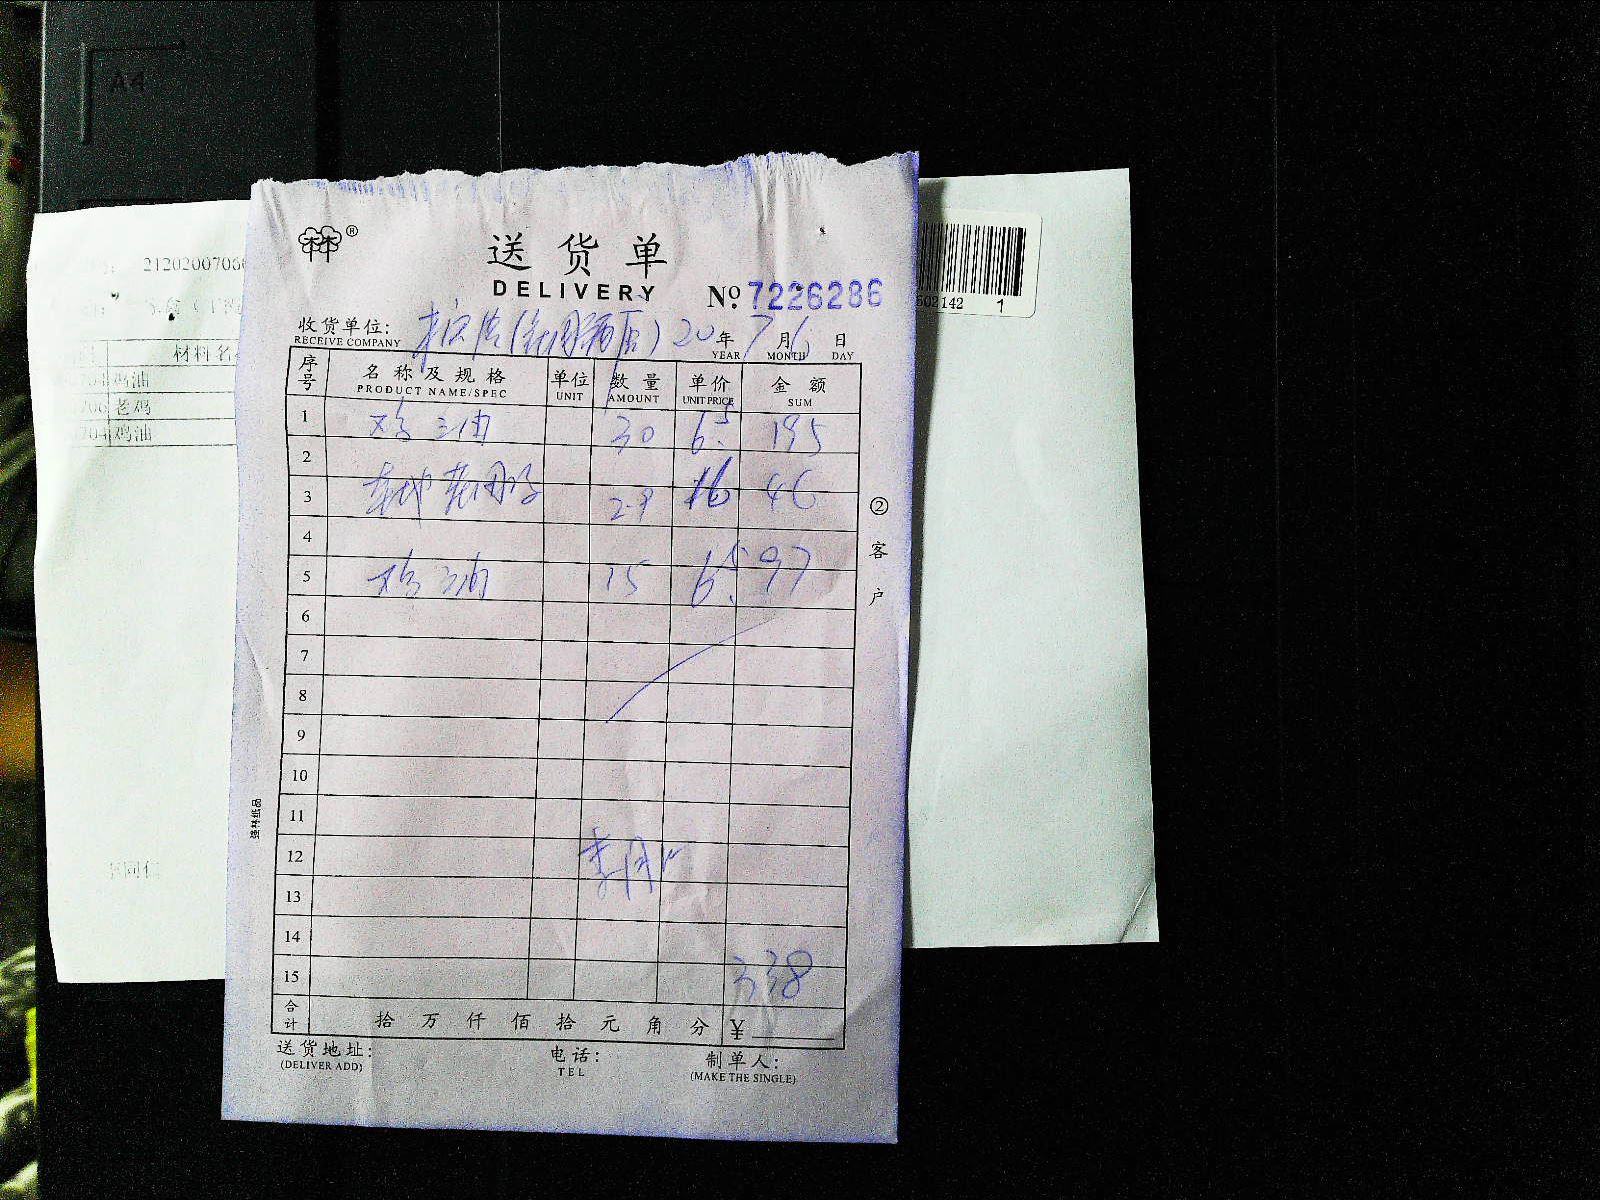 A4
21202007060
材料名
鸡油
老鸡
鸡油
502142 1
林®
送货单
DELIVERY
No. 7226286
收货单位: 20年7月6日
RECEIVE COMPANY YEAR MONTH DAY
序号 名称及规格 单位 数量 单价 金额
PRODUCT NAME/SPEC UNIT AMOUNT UNIT PRICE SUM
1 鸡油 30 6.5 195
2
3 2.9 16 46
4
5 鸡油 15 6.5 97
6
7
8
9
10
11
12
13
14
15 338
合计 拾万仟佰拾元角分 ¥
送货地址: 电话: 制单人:
(DELIVER ADD) TEL (MAKE THE SINGLE)
②客户
强林纸品